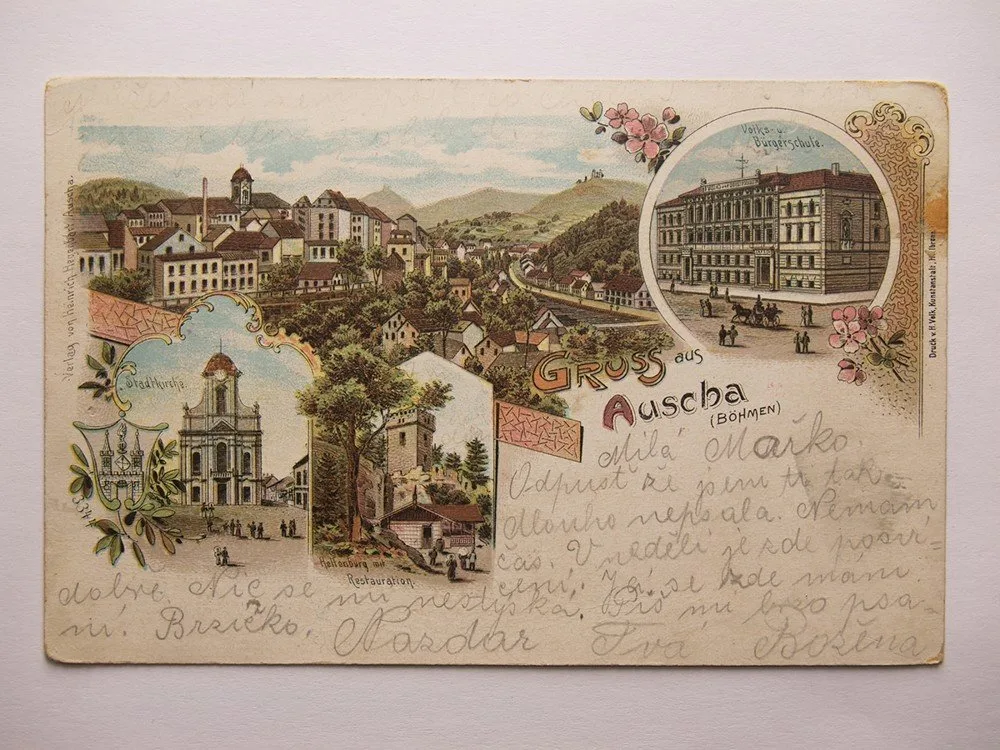 Volks- u.
Bürgerschule.
Stadtkirche.
Gruss aus
Auscha
(BÖHMEN)
Helfenburg mit
Restauration.
Verlag von Heinrich Auscha.
Druck v. H. Volk, Konstanstalt, Heilbronn.
334
Milá Mařko.
Odpusť že jsem ti tak
dlouho nepsala. Nemám
čas. V neděli je zde posví-
cení. Já se zde mám
dobře. Nic se mi nestýská. Piš mi brzo psa-
ní. Brzičko. Nazdar Tvá Božena